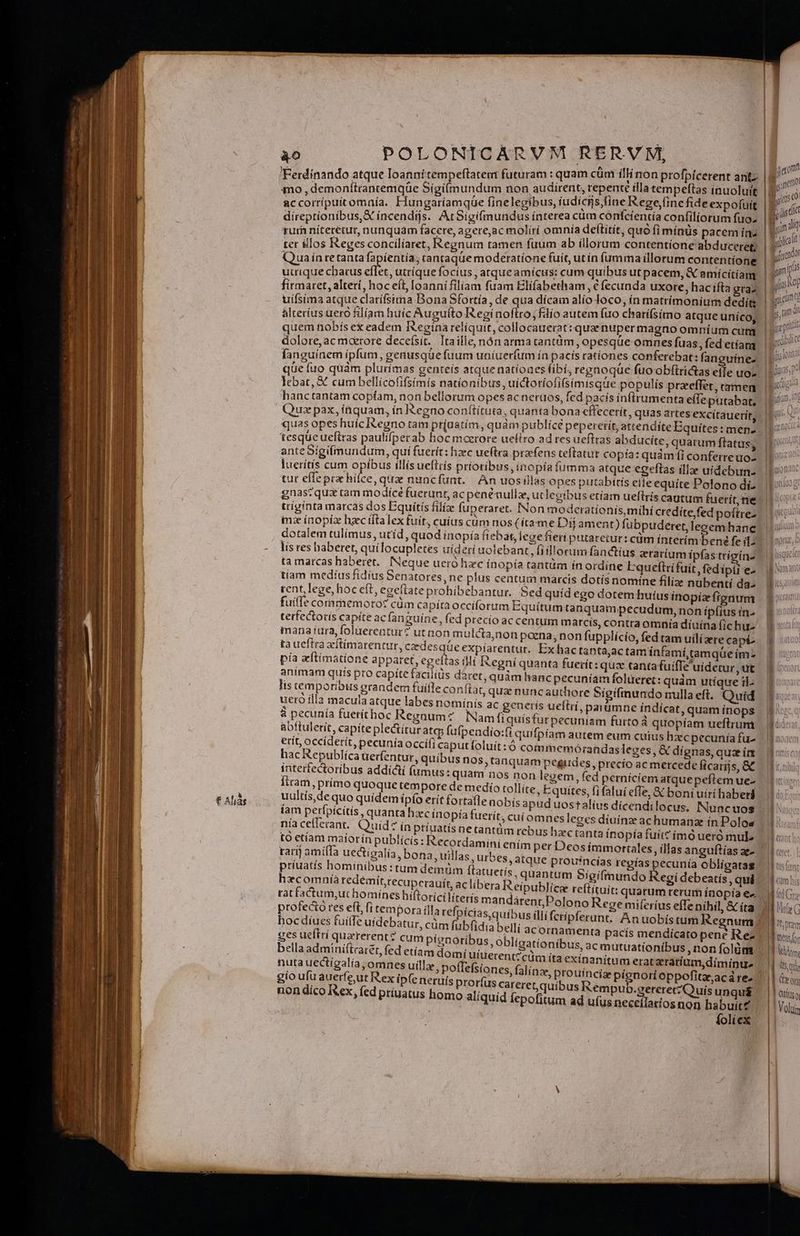 40 POLONICARVM RERVM,
Ferdinando atque Ioanni tempestatem futuram: quam cùm illi non prospicerent ani-
mo, demonstrantemqüe Sigismundum non audirent, repente illa tempestas inuoluit
ac corripuit omnia. Hungariamqüe sine legibus, iudicijs, sine Rege, sine fide exposuit
direptionibus, & incendijs. At Sigismundus interea cùm conscientia consiliorum suo-
rum niteretur, nunquàm facere, agere, ac moliri omnia destitit, quò si minùs pacem in-
ter illos Reges conciliaret, Regnum tamen suum ab illorum contentione abduceret.
Qua in re tanta sapientia, tantaqüe moderatione fuit, ut in summa illorum contentione
utrique charus esset, utrique socius, atque amicus: cum quibus ut pacem, & amicitiam
firmaret, alteri, hoc est, Ioanni filiam suam Elisabetham, è fecunda uxore, hac ista gra-
uissima atque clarissima Bona Sfortia, de qua dicam alio loco, in matrimonium dedit:
alterius uerò filiam huic Augusto Regi nostro, filio autem suo charissimo atque unico,
quem nobis ex eadem Regina reliquit, collocauerat: quæ nuper magno omnium cum
dolore, ac mœrore decessit. Ita ille, nón arma tantùm, opesqüe omnes suas, sed etiam
sanguinem ipsum, genusqüe suum uniuersum in pacis rationes conferebat: sanguine-
qüe suo quàm plurimas genteis atque nationes sibi, regnoqüe suo obstrictas esse uo-
lebat, & cum bellicosissimis nationibus, uictoriosissimisqüe populis præesset, tamen
hanc tantam copiam, non bellorum opes ac neruos, sed pacis instrumenta esse putabat.
Quæ pax, inquam, in Regno constituta, quanta bona effecerit, quas artes excitauerit,
quas opes huic Regno tam priuatim, quàm publicè pepererit, attendite Equites: men-
tesqüe uestras paulisper ab hoc mœrore uestro ad res uestras abducite, quarum status,
ante Sigismundum, qui fuerit: hæc uestra præsens testatur copia: quàm si conferre uo-
lueritis cum opibus illis uestris prioribus, inopia summa atque egestas illæ uidebun-
tur esse præ hisce, quæ nunc sunt. An uos illas opes putabitis esse equite Polono di-
gnas? quæ tam modicè fuerunt, ac penè nullæ, ut legibus etiam uestris cautum fuerit, ne
triginta marcas dos Equitis filiæ superaret. Non moderationis, mihi credite, sed postre-
mæ inopiæ hæc ista lex fuit, cuius cùm nos (ita me Dij ament) subpuderet, legem hanc
dotalem tulimus, ut id, quod inopia fiebat, lege fieri putaretur: cùm interim benè se il-
lis res haberet, qui locupletes uideri uolebant, si illorum sanctius ærarium ipsas trigin-
ta marcas haberet. Neque uerò hæc inopia tantùm in ordine Equestri fuit, sed ipsi e-
tiam medius fidius Senatores, ne plus centum marcis dotis nomine filiæ nubenti da-
rent, lege, hoc est, egestate prohibebantur. Sed quid ego dotem huius inopiæ signum
fuisse commemoro? cùm capita occisorum Equitum tanquam pecudum, non ipsius in-
terfectoris capite ac sanguine, sed precio ac centum marcis, contra omnia diuina sic hu-
mana iura, soluerentur? ut non mulcta, non pœna, non supplicio, sed tam uili ære capi-
ta uestra æstimarentur, cædesqüe expiarentur. Ex hac tanta, ac tam infami, tamqüe im-
pia æstimatione apparet, egestas illi Regni quanta fuerit: quæ tanta fuisse uidetur, ut
animam quis pro capite faciliùs daret, quàm hanc pecuniam solueret: quàm utique il-
lis temporibus grandem fuisse constat, quæ nunc authore Sigismundo nulla est. Quid
uerò illa macula atque labes nominis ac generis uestri, parúmne indicat, quam inops
à pecunia fuerit hoc Regnum? Nam si quis fur pecuniam furto à quopiam uestrum
abstulerit, capite plectitur atq; suspendio: si quispiam autem eum cuius hæc pecunia fu-
erit, occiderit, pecunia occisi caput soluit: ò commemorandas leges, & dignas, quæ in
hac Republica uersentur, quibus nos, tanquam pecudes, precio ac mercede sicarijs, &
interfectoribus addicti sumus: quam nos non legem, sed perniciem atque pestem ue-
stram, primo quoque tempore de medio tollite, Equites, si salui esse, & boni uiri haberi
uultis, de quo quidem ipso erit fortasse nobis apud uos † alius dicendi locus. Nunc uos
iam perspicitis, quanta hæc inopia fuerit, cui omnes leges diuinæ ac humanæ in Polo-
nia cesserant. Quid? in priuatis ne tantùm rebus hæc tanta inopia fuit? imò uerò mul-
tò etiam maior in publicis: Recordamini enim per Deos immortales, illas angustias æ-
rarij amissa uectigalia, bona, uillas, urbes, atque prouincias regias pecunia obligatas
priuatis hominibus: tum demùm statuetis, quantum Sigismundo Regi debeatis, qui
hæc omnia redemit, recuperauit, ac libera Reipublicæ restituit: quarum rerum inopia e-
rat factum, ut homines historici literis mandarent, Polono Rege miserius esse nihil, & ita
profectò res est, si tempora illa respicias, quibus illi scripserunt. An uobis tum Regnum
hoc diues fuisse uidebatur, cùm subsidia belli ac ornamenta pacis mendicato penè Re-
ges uestri quærerent? cum pignoribus, obligationibus, ac mutuationibus, non solùm
bella administraret, sed etiam domi uiuerent? cùm ita exinanitum erat ærarium, diminu-
nuta uectigalia, omnes uillæ, possessiones, salinæ, prouinciæ pignori oppositæ, ac à re-
gio usu auersę, ut Rex ipse neruis prorsus careret, quibus Rempub. gereret? Quis unquã
non dico Rex, sed priuatus homo aliquid sepositum ad usus necessarios non habuit?
soli ex
† Aliàs